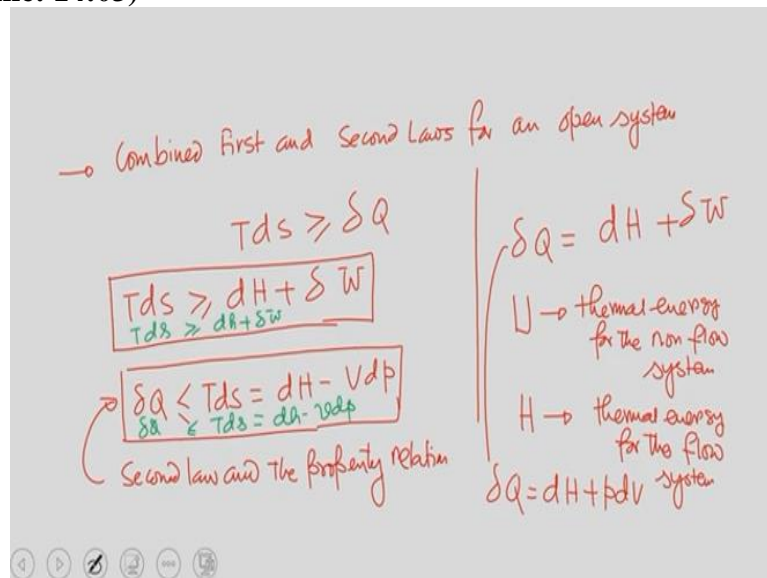 → Combined First and Second Laws for an open system
Tds ≥ δQ
Tds ≥ dH + δW
Tds ≥ dh + δw
δQ ≤ Tds = dH - Vdp
δq ≤ Tds = dh - vdp
Second law and the property relation
δQ = dH + δW
U → thermal energy
for the non flow
system
H → thermal energy
for the flow
system
δQ = dH + pdv